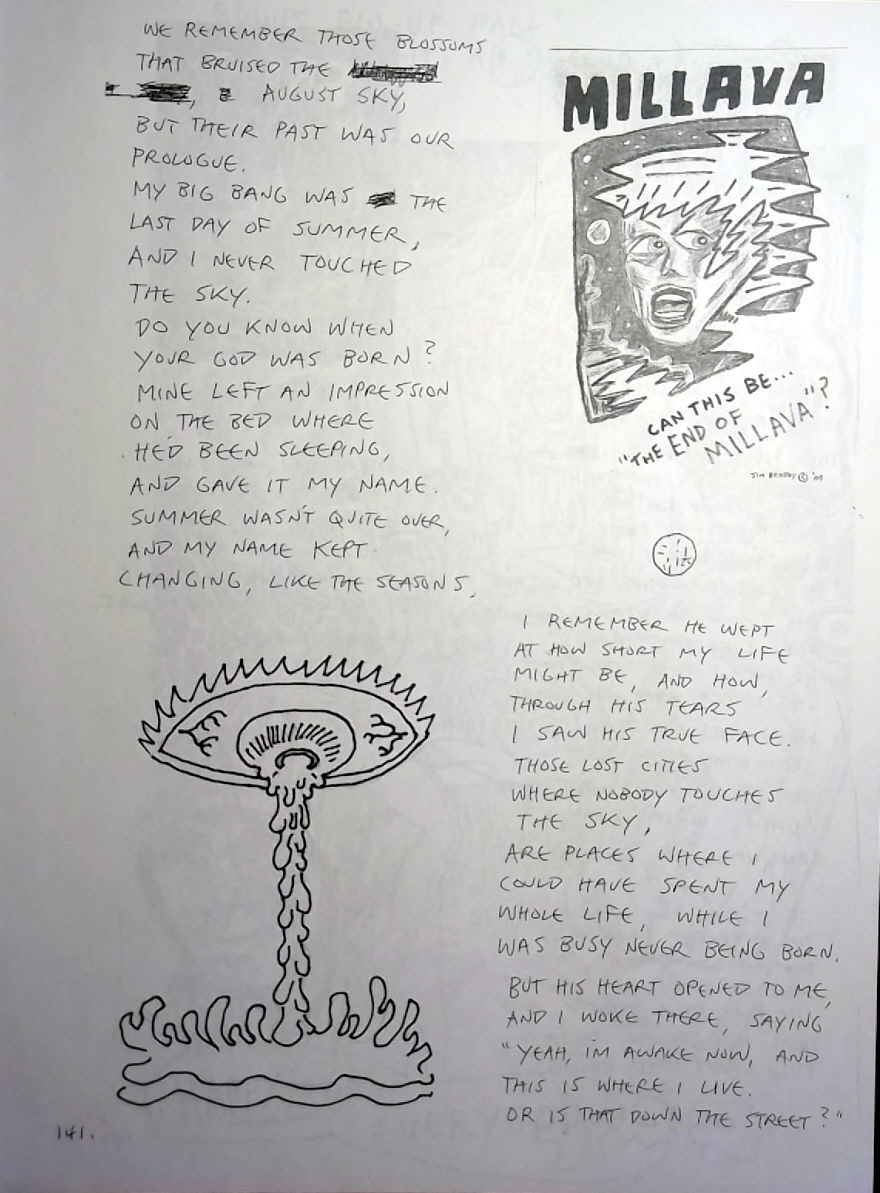 WE REMEMBER THOSE BLOSSOMS
THAT BRUISED THE
, AUGUST SKY,
BUT THEIR PAST WAS OUR
PROLOGUE.
MY BIG BANG WAS THE
LAST DAY OF SUMMER,
AND I NEVER TOUCHED
THE SKY.
DO YOU KNOW WHEN
YOUR GOD WAS BORN?
MINE LEFT AN IMPRESSION
ON THE BED WHERE
HE'D BEEN SLEEPING,
AND GAVE IT MY NAME.
SUMMER WASN'T QUITE OVER,
AND MY NAME KEPT
CHANGING, LIKE THE SEASONS,
MILLAVA
CAN THIS BE...
"THE END OF
MILLAVA"?
JIM © '09
I REMEMBER HE WEPT
AT HOW SHORT MY LIFE
MIGHT BE, AND HOW,
THROUGH HIS TEARS
I SAW HIS TRUE FACE.
THOSE LOST CITIES
WHERE NOBODY TOUCHES
THE SKY,
ARE PLACES WHERE I
COULD HAVE SPENT MY
WHOLE LIFE, WHILE I
WAS BUSY NEVER BEING BORN.
BUT HIS HEART OPENED TO ME,
AND I WOKE THERE, SAYING
"YEAH, I'M AWAKE NOW, AND
THIS IS WHERE I LIVE.
OR IS THAT DOWN THE STREET?"
141.